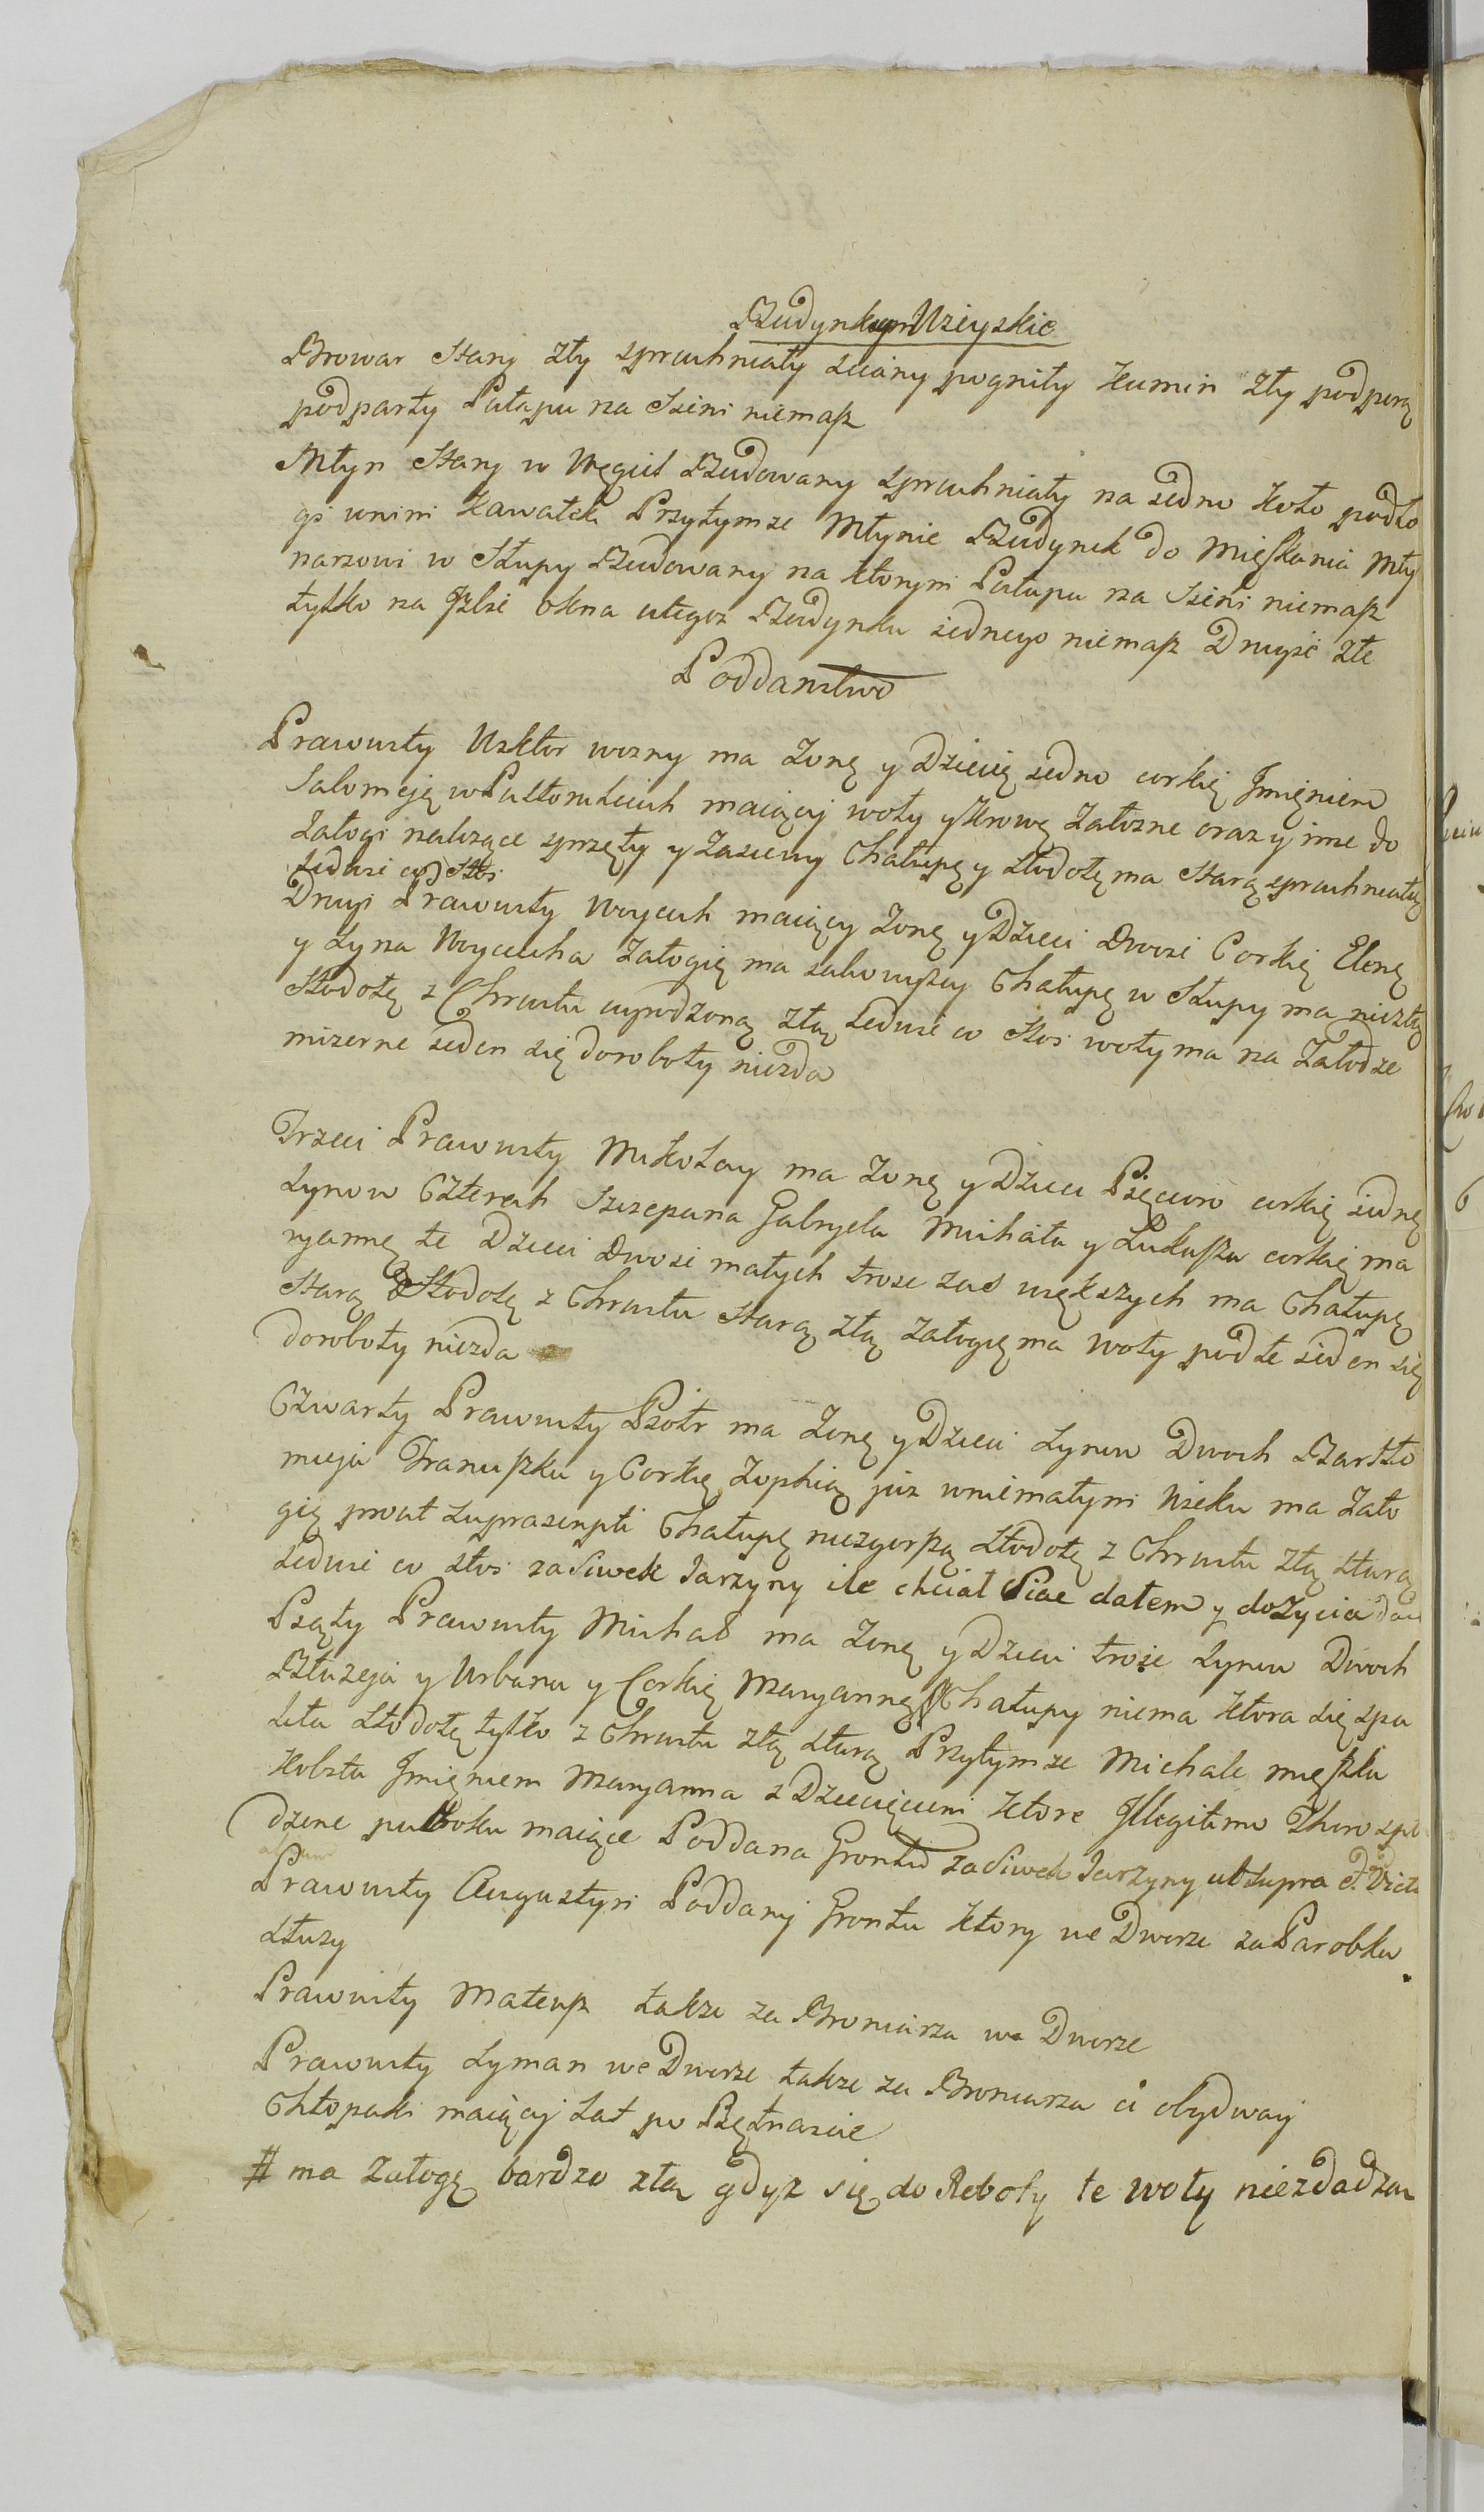 Budynki Wieyskie
Browar Stary zły spruchniały sciany pogniły Kumin zły podporą
podparty Pułapu na Sieni niemasz
Młyn Stary w Węgieł Budowany spruchniały na iedno Koło podło
gi wnim Kawałek Przytymze Młynie Budynek do mięszkania Mły
narzowi w Słupy Budowany na ktorym Pułapu na Sieni niemasz
tylko na Jzbie okna utegoz Budynku iednego niemasz Drugie złe
Poddanstwo
Prawusty Wiktor wozny ma Zonę y Dziecię iedno corkię Jmięniem
Salomeję wPułtoruleciech maiący woły y Krowę Załozne oraz y inne do
Załogi nalezące sprzęty y Zasiewy Chałupę y Stodołę ma Starą spruchniałą
ledwie co Stoi
Drugi Prawusty Woyciech maiący Zonę y Dzieci Dwoie Corkię Elenę
y Syna Woyciecha Załogię ma iakowyższy Chałupę w Słupy ma niezłą
Stodołę z Chrustu ugrodzoną złą ledwie co Stoi woły ma na Załodze
mizerne ieden się doroboty niezda
Trzeci Prawusty Mikołay ma Zonę y Dzieci Pięcioro corkię iednę
Synow Czterech Szczepana Gabryela Michała y Łukasza corkię ma
ryannę te Dzieci Dwoie małych troie zas większych ma Chałupę
Starą Stodołę z Chrustu Starą złą załogię ma woły podłe ieden się
doroboty niezda
Czwarty Prawusty Piotr ma Zonę y Dzieci Synow Dwoch Bartło
mieja Franciszka y Corkę Zophią juz wniemałym Wieku ma Zało
gię prout suprascripti Chałupę niezgorszą Stodołę z Chrustu złą starą
ledwie co stoi zasiwek Jarzyny ile chciał Siac dałem y doZycia
Piąty Prawusty Michał ma Zonę y Dzieci troie Synow Dwoch
Błażeja y Urbana y Corkię Maryannę # Chałupy niema Ktora się spa
liła Stodołę tylko z Chrustu złą starą Przytymze Michale mięszka
Kobita Jmięniem Maryanna z Dziecięciem Ktore Jllegitimo Thoro spło
dzone pułroku maiące Poddana Gruntu zasiwek Jarzyny ut supra
Prawusty Augustyn Poddany Gruntu Ktory we Dworze zaParobka
Słuzy
Prawusty Mateusz takze za Broniarza we Dworze
Prawusty Syman we Dworze takze za Broniarza ci obydway
Chłopaki maiący Lat po Piętnascie
# ma Załogę bardzo złą gdyz się do Roboty te woły niezdadzą